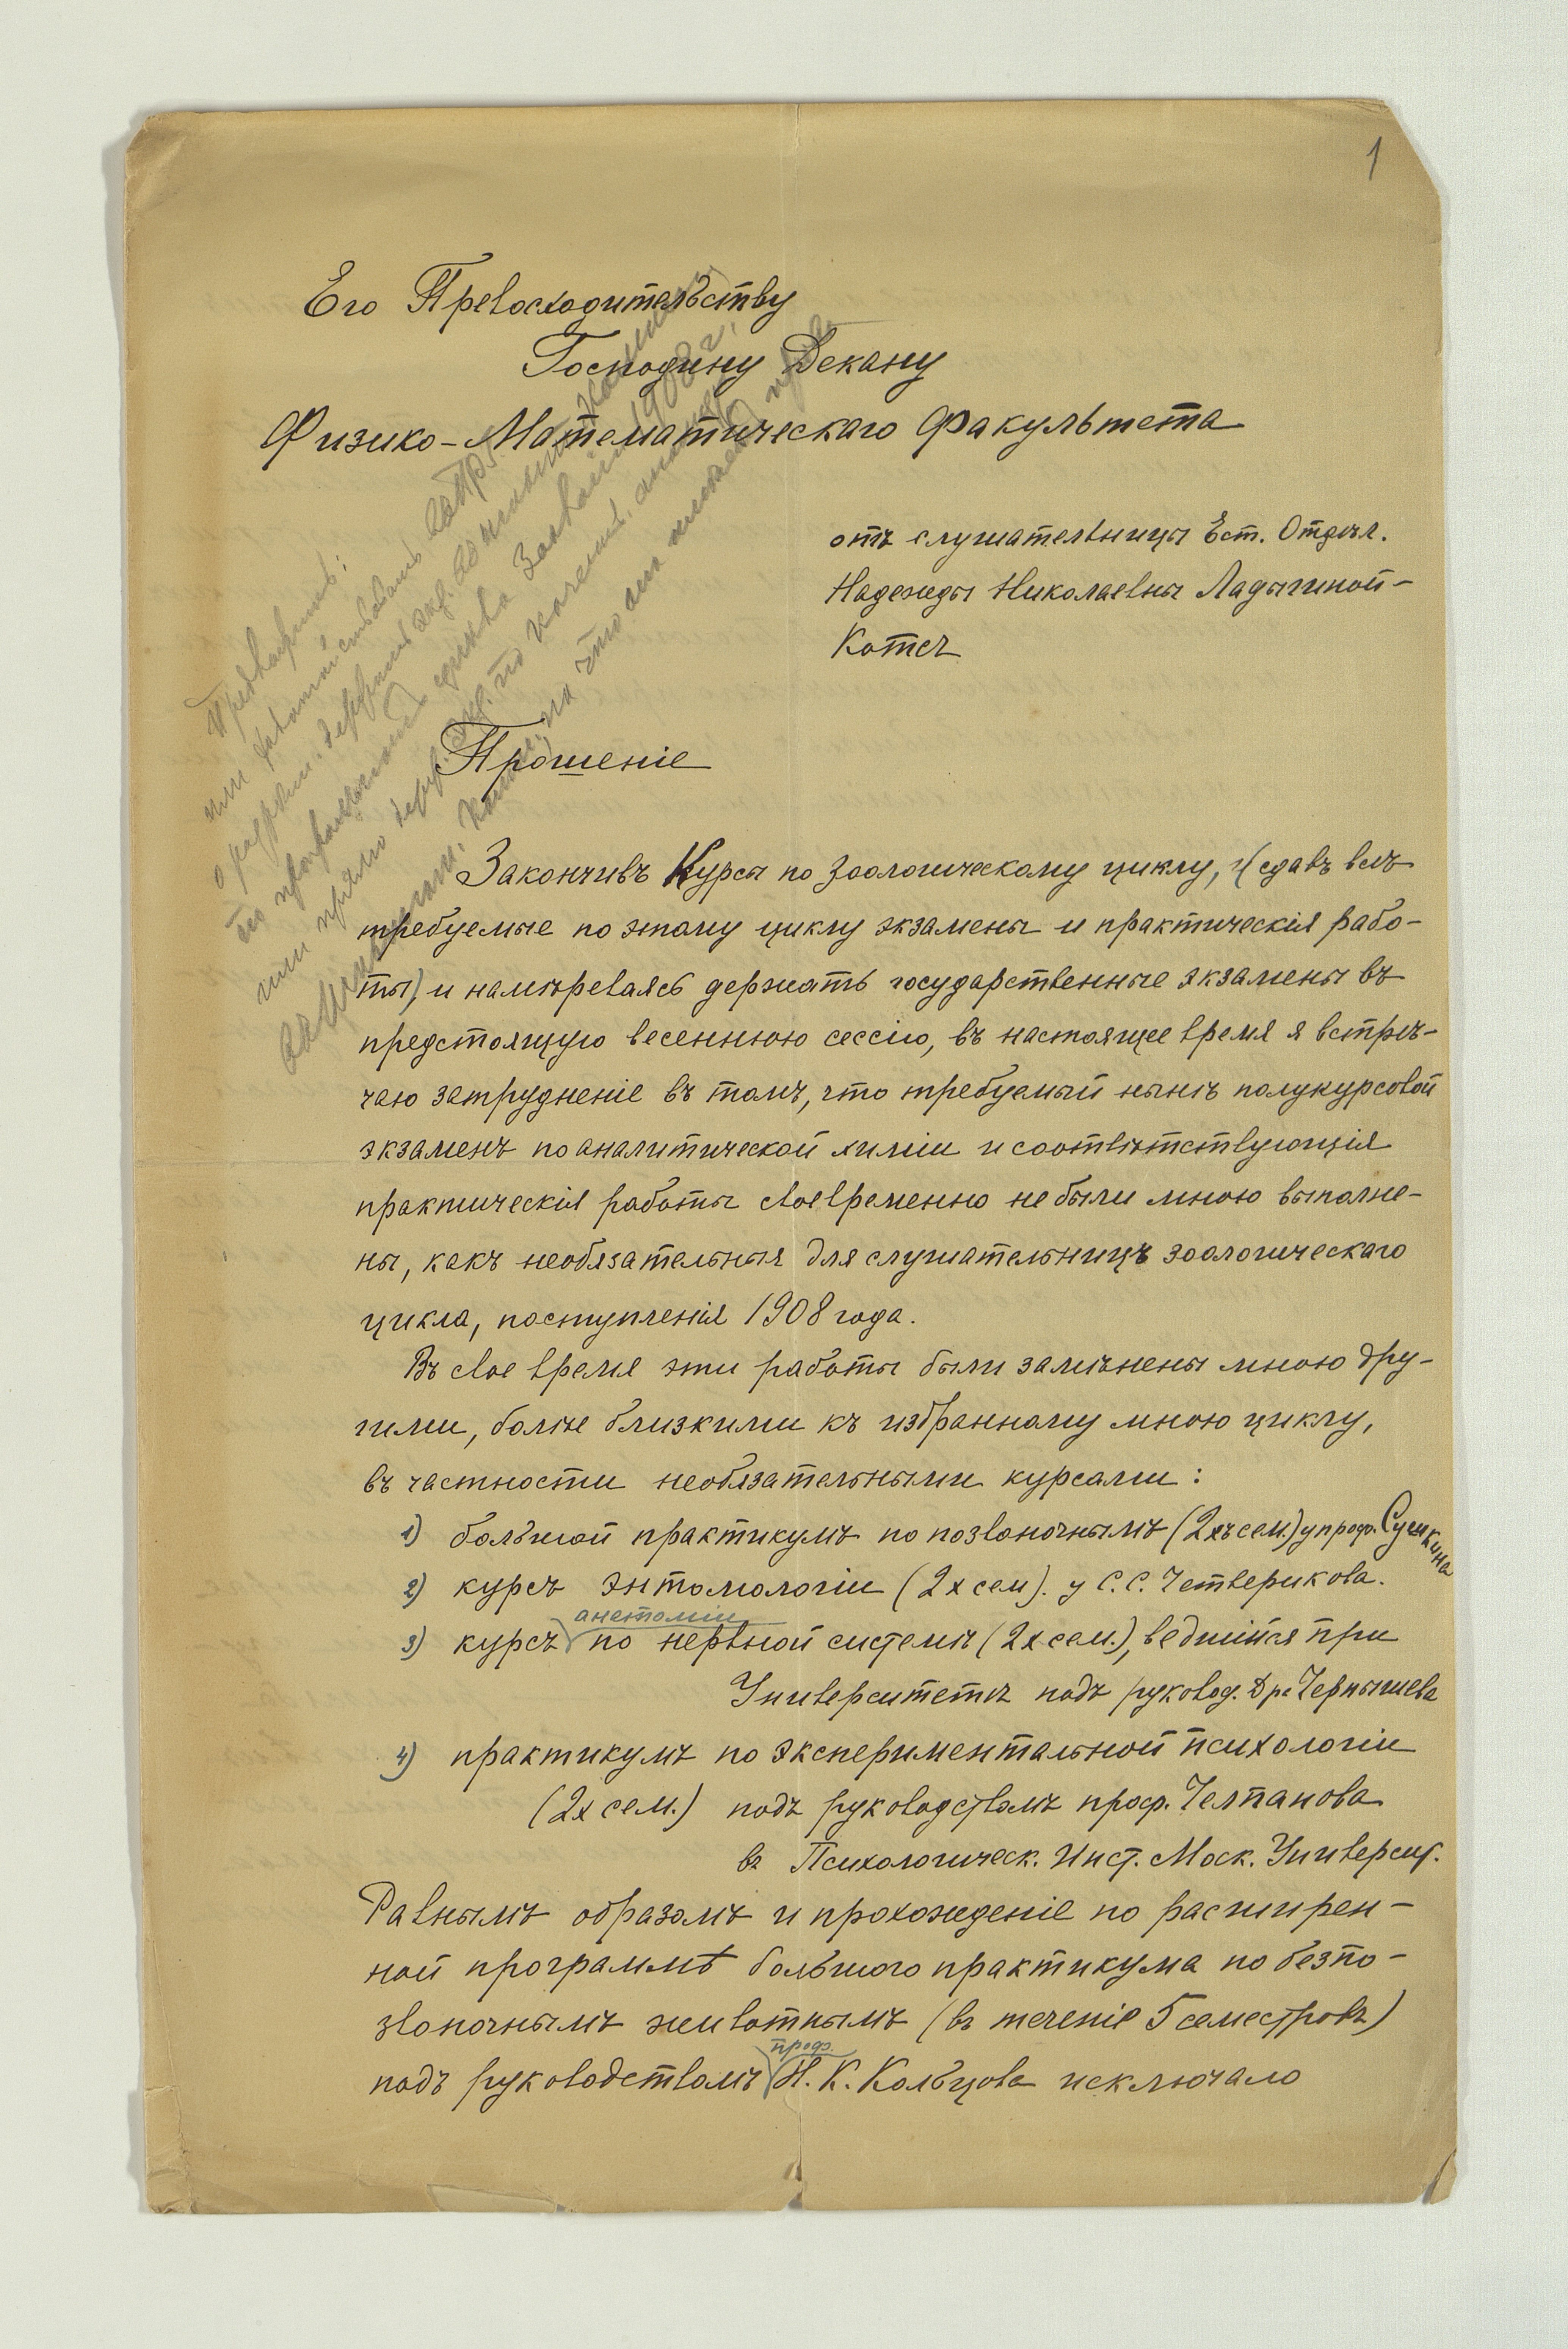 1
Его Превосходительству
Господину Декану
Физико-Математическаго Факультета
отъ слушательницы Ест. Отдѣл.
Надежды Николаевны Ладыгиной-
Котсъ
Прошеніе
Закончивъ Курсы по зоологическому циклу, и (сдавъ всѣ
требуемые по этому циклу экзамены и практическія рабо-
ты), и намѣреваясь держать государственные экзамены въ
предстоящую весеннюю сессію, въ настоящее время я встрѣ-
чаю затрудненіе въ томъ, что требуемый нынѣ полукурсовой
экзаменъ по аналитической химіи и соотвѣтствующія
практическія работы своевременно не были мною выполне-
ны, какъ необязательныя для слушательницъ зоологическаго
цикла, поступленія 1908 года.
Въ свое время эти работы были замѣнены мною дру-
гими, болѣе близкими къ избранному мною циклу,
въ частности необязательными курсами:
1) большой практикумъ по позвоночнымъ (2хъ сем.) у проф. Сушкина
2) курсъ энтомологіи (2х сем). у С. С. Четверикова.
анатоміи
3) курсъ по нервной системѣ (2х сем.), ведшійся при
Университетѣ подъ руковод. Дра Чернышева
4) практикумъ по экспериментальной психологіи
(2х сем.) подъ руководствомъ проф. Челпанова
въ Психологическ. Инст. Моск. Университ.
Равнымъ образомъ и прохожденіе по расширен-
ной программѣ большого практикума по безпо-
звоночнымъ животнымъ (въ теченіе 5 семестровъ)
проф.
подъ руководствомъ Н. К. Кольцова исключало